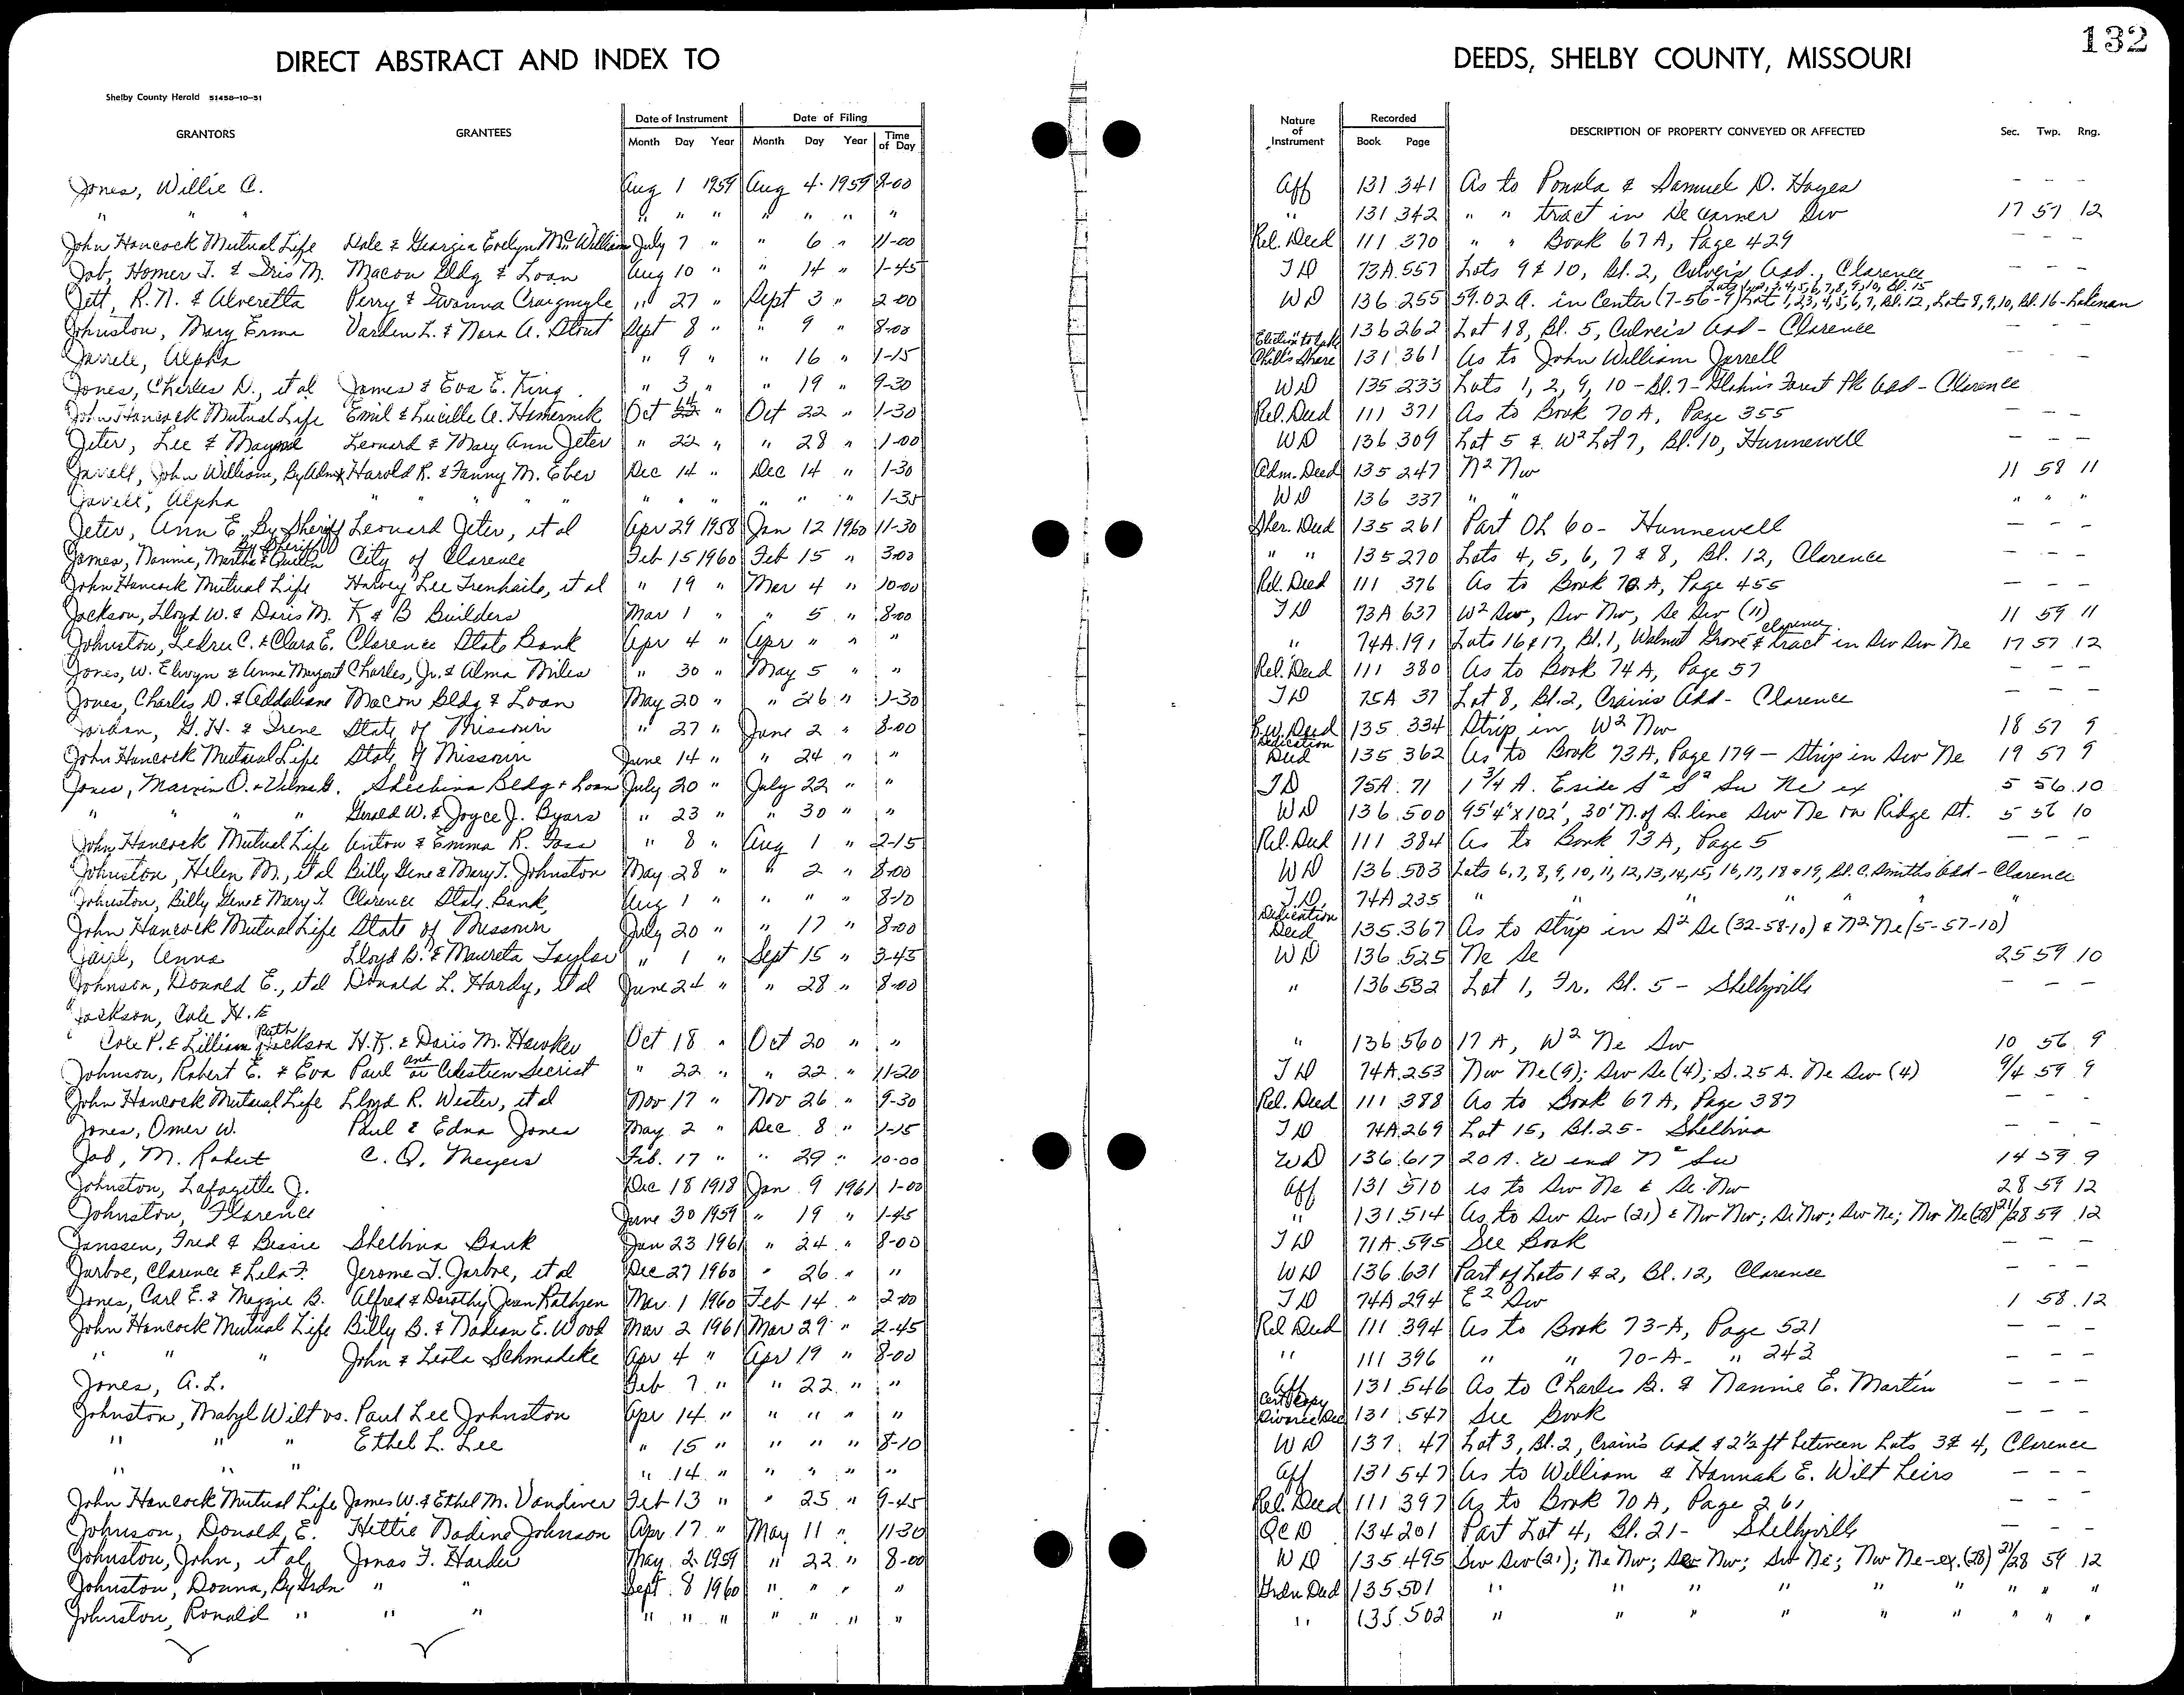 132
DIRECT ABSTRACT AND INDEX TO DEEDS, SHELBY COUNTY, MISSOURI
Shelby County Herald 51458-10-51
GRANTORS GRANTEES Date of Instrument Date of Filing Nature of Instrument Recorded DESCRIPTION OF PROPERTY CONVEYED OR AFFECTED Sec. Twp. Rng.
Month Day Year Month Day Year Time of Day Book Page
Jones, Willie C. Aug 1 1959 Aug 4 1959 8-00 Aff 131 341 As to Ponola & Samuel D. Hayes - - -
" " " " " " " " " " " 131 342 " " tract in Se corner Sw 17 57 12
John Hancock Mutual Life Dale & Georgia Evelyn McWilliam July 7 " " 6 " 11-00 Rel. Deed 111 370 " " Book 67A, Page 429 - - -
Job, Homer T. & Iris M. Macon Bldg & Loan Aug 10 " " 14 " 1-45 TD 73A 557 Lots 9 & 10, Bl. 2, Culver's Add., Clarence - - -
Jett, R.N. & Alveretta Perry & Iwanna Craigmyle " 27 " Sept 3 " 2-00 WD 136 255 59.02 A. in Center (7-56-9) Lots 1,2,3,4,5,6,7,8,9,10, Bl. 15 Lots 1,2,3,4,5,6,7, Bl. 12, Lots 8,9,10, Bl. 16 - Lakenan
Johnston, Mary Erma Varden L. & Nora A. Stout Sept 8 " " 9 " 8-00 136 262 Lot 18, Bl. 5, Culver's Add - Clarence - - -
Jarrell, Alpha " 9 " " 16 " 1-15 Election to take Child's Share 131 361 As to John William Jarrell - - -
Jones, Charles D., et al James & Eva E. King " 3 " " 19 " 9-30 WD 135 233 Lots 1, 2, 9, 10 - Bl. 7 - Forest Pk Add - Clarence
John Hancock Mutual Life Emil & Lucille A. Oct " Oct 22 " 1-30 Rel. Deed 111 371 As to Book 70A, Page 355 - - -
Jeter, Lee & Leonard & Mary Ann Jeter " 22 " " 28 " 1-00 WD 136 309 Lot 5 & W2 Lot 7, Bl. 10, Hunnewell - - -
Jarrell, John William, By Admx Harold R. & Fanny M. Eber Dec 14 " Dec 14 " 1-30 Adm. Deed 135 247 N2 Nw 11 58 11
Jarrell, Alpha " " " " " " " " " " 1-35 WD 136 337 " " " " "
Jeter, Ann E. By Sheriff Leonard Jeter, et al Apr 29 1958 Jan 12 1960 11-30 Sher. Deed 135 261 Part OL 60 - Hunnewell - - -
James, Nannie, Martha & By Sheriff City of Clarence Feb 15 1960 Feb 15 " 3-00 " " 135 270 Lots 4, 5, 6, 7 & 8, Bl. 12, Clarence - - -
John Hancock Mutual Life Harvey Lee Trenhaile, et al " 19 " Mar 4 " 10-00 Rel. Deed 111 376 As to Book 72A, Page 455 - - -
Jackson, Lloyd W. & Doris M. K & B Builders Mar 1 " " 5 " 8-00 TD 73A 637 W2 Sw, Sw Nw, Se Sw (11) 11 59 11
Johnston, Ledru C. & Clara E. Clarence State Bank Apr 4 " Apr " " " " 74A 191 Lots 16 & 17, Bl. 1, Walnut Grove Clarence & tract in Sw Sw Ne 17 57 12
Jones, W. Elwyn & Anne Margaret Charles, Jr. & Alma Miles " 30 " May 5 " " Rel. Deed 111 380 As to Book 74A, Page 57 - - -
Jones, Charles D. & Addaliane Macon Bldg & Loan May 20 " " 26 " 1-30 TD 75A 37 Lot 8, Bl. 2, Crain's Add - Clarence - - -
Jordan, G. H. & Irene State of Missouri " 27 " June 2 " 8-00 R.W. Deed 135 334 Strip in W2 Nw 18 57 9
John Hancock Mutual Life State of Missouri June 14 " " 24 " " Dedication Deed 135 362 As to Book 73A, Page 179 - Strip in Sw Ne 19 57 9
Jones, Marvin O. & Velma G. Shelbina Bldg + Loan July 20 " July 22 " " TD 75A 71 1 3/4 A. E side S2 S2 Sw Ne ex 5 56 10
" " " " Gerald W. & Joyce J. Byars " 23 " " 30 " " WD 136 500 95'4" x 102', 30' N. of S. line Sw Ne on Ridge St. 5 56 10
John Hancock Mutual Life Anton & Emma R. Foss " 8 " Aug 1 " 2-15 Rel. Deed 111 384 As to Book 73A, Page 5 - - -
Johnston, Helen M., et al Billy Gene & Mary T. Johnston May 28 " " 2 " 8-00 WD 136 503 Lots 6, 7, 8, 9, 10, 11, 12, 13, 14, 15, 16, 17, 18 & 19, Bl. C. Smith's Add - Clarence
Johnston, Billy Gene & Mary T. Clarence State Bank, Aug 1 " " " " 8-10 T.D. 74A 235 " " " " "
John Hancock Mutual Life State of Missouri July 20 " " 17 " 8-00 Dedication Deed 135 367 As to Strip in S2 Se (32-58-10) & N2 Ne (5-57-10)
Jaigl, Anna Lloyd B. & Maureta Taylor " 1 " Sept 15 " 3-45 WD 136 525 Ne Se 25 59 10
Johnson, Donald E., et al Donald L. Hardy, et al June 24 " " 28 " 8-00 " 136 532 Lot 1, Fr. Bl. 5 - Shelbyville - - -
Jackson, Cole H. &
Cole P. & Lillian Ruth Jackson H.K. & Doris M. Hawker Oct 18 " Oct 20 " " " 136 560 17 A, W2 Ne Sw 10 56 9
Johnson, Robert E. & Eva Paul and or Celestien Secrist " 22 " " 22 " 11-20 TD 74A 253 Nw Ne (9); Sw Se (4); S. 25 A. Ne Sw (4) 9/4 59 9
John Hancock Mutual Life Lloyd R. Wester, et al Nov 17 " Nov 26 " 9-30 Rel. Deed 111 388 As to Book 67A, Page 387 - - -
Jones, Omer W. Paul & Edna Jones May 2 " Dec 8 " 1-15 TD 74A 269 Lot 15, Bl. 25 - Shelbina - - -
Job, M. Robert C. O. Meyers Feb. 17 " " 29 " 10-00 WD 136 617 20 A. W end N2 Sw 14 59 9
Johnston, Lafayette J. Dec 18 1918 Jan 9 1961 1-00 Aff 131 510 As to Sw Ne & Se Nw 28 59 12
Johnston, Florence June 30 1959 " 19 " 1-45 " 131 514 As to Sw Sw (21) & Nw Nw; Se Nw; Sw Ne; Nw Ne (28) 21/28 59 12
Janssen, Fred & Bessie Shelbina Bank Jan 23 1961 " 24 " 8-00 TD 71A 595 See Book - - -
Jarboe, Clarence & Lela F. Jerome T. Jarboe, et al Dec 27 1960 " 26 " " WD 136 631 Part of Lots 1 & 2, Bl. 12, Clarence - - -
Jones, Carl E. & Maggie B. Alfred & Dorothy Jean Rathgen Mar. 1 1960 Feb 14 " 2-00 TD 74A 294 E2 Sw 1 58 12
John Hancock Mutual Life Billy B. & Nadean E. Wood Mar 2 1961 Mar 29 " 2-45 Rel Deed 111 394 As to Book 73-A, Page 521 - - -
" " " John & Leola Schmadeke Apr 4 " Apr 19 " 8-00 " 111 396 " " 70-A- " 243 - - -
Jones, A. L. Feb 7 " " 22 " " Aff 131 546 As to Charles B. & Nannie E. Martin - - -
Johnston, Mabyl Wilt vs. Paul Lee Johnston Apr 14 " " " " " Cert Copy Divorce Dec 131 547 See Book - - -
" " " Ethel L. Lee " 15 " " " " 8-10 WD 137 47 Lot 3, Bl. 2, Crain's Add & 2½ ft between Lots 3 & 4, Clarence
" " " " 14 " " " " " Aff 131 547 As to William & Hannah E. Wilt heirs - - -
John Hancock Mutual Life James W. & Ethel M. Vandiver Feb 13 " " 25 " 9-45 Rel. Deed 111 397 As to Book 70A, Page 261 - - -
Johnson, Donald E. Hettie Nadine Johnson Apr 17 " May 11 " 11-30 QCD 134 201 Part Lot 4, Bl. 21 - Shelbyville - - -
Johnston, John, et al Jonas F. Harder May 2 1959 " 22 " 8-00 WD 135 495 Sw Sw (21); Ne Nw; Nw; Sw Ne; Nw Ne - ex. (28) 21/28 59 12
Johnston, Donna, By Grdn " " Sept. 8 1960 " " " " Grdn Deed 135 501 " " " " " " " " "
Johnston, Ronald " " " " " " " " " " " 135 502 " " " " " " " " "